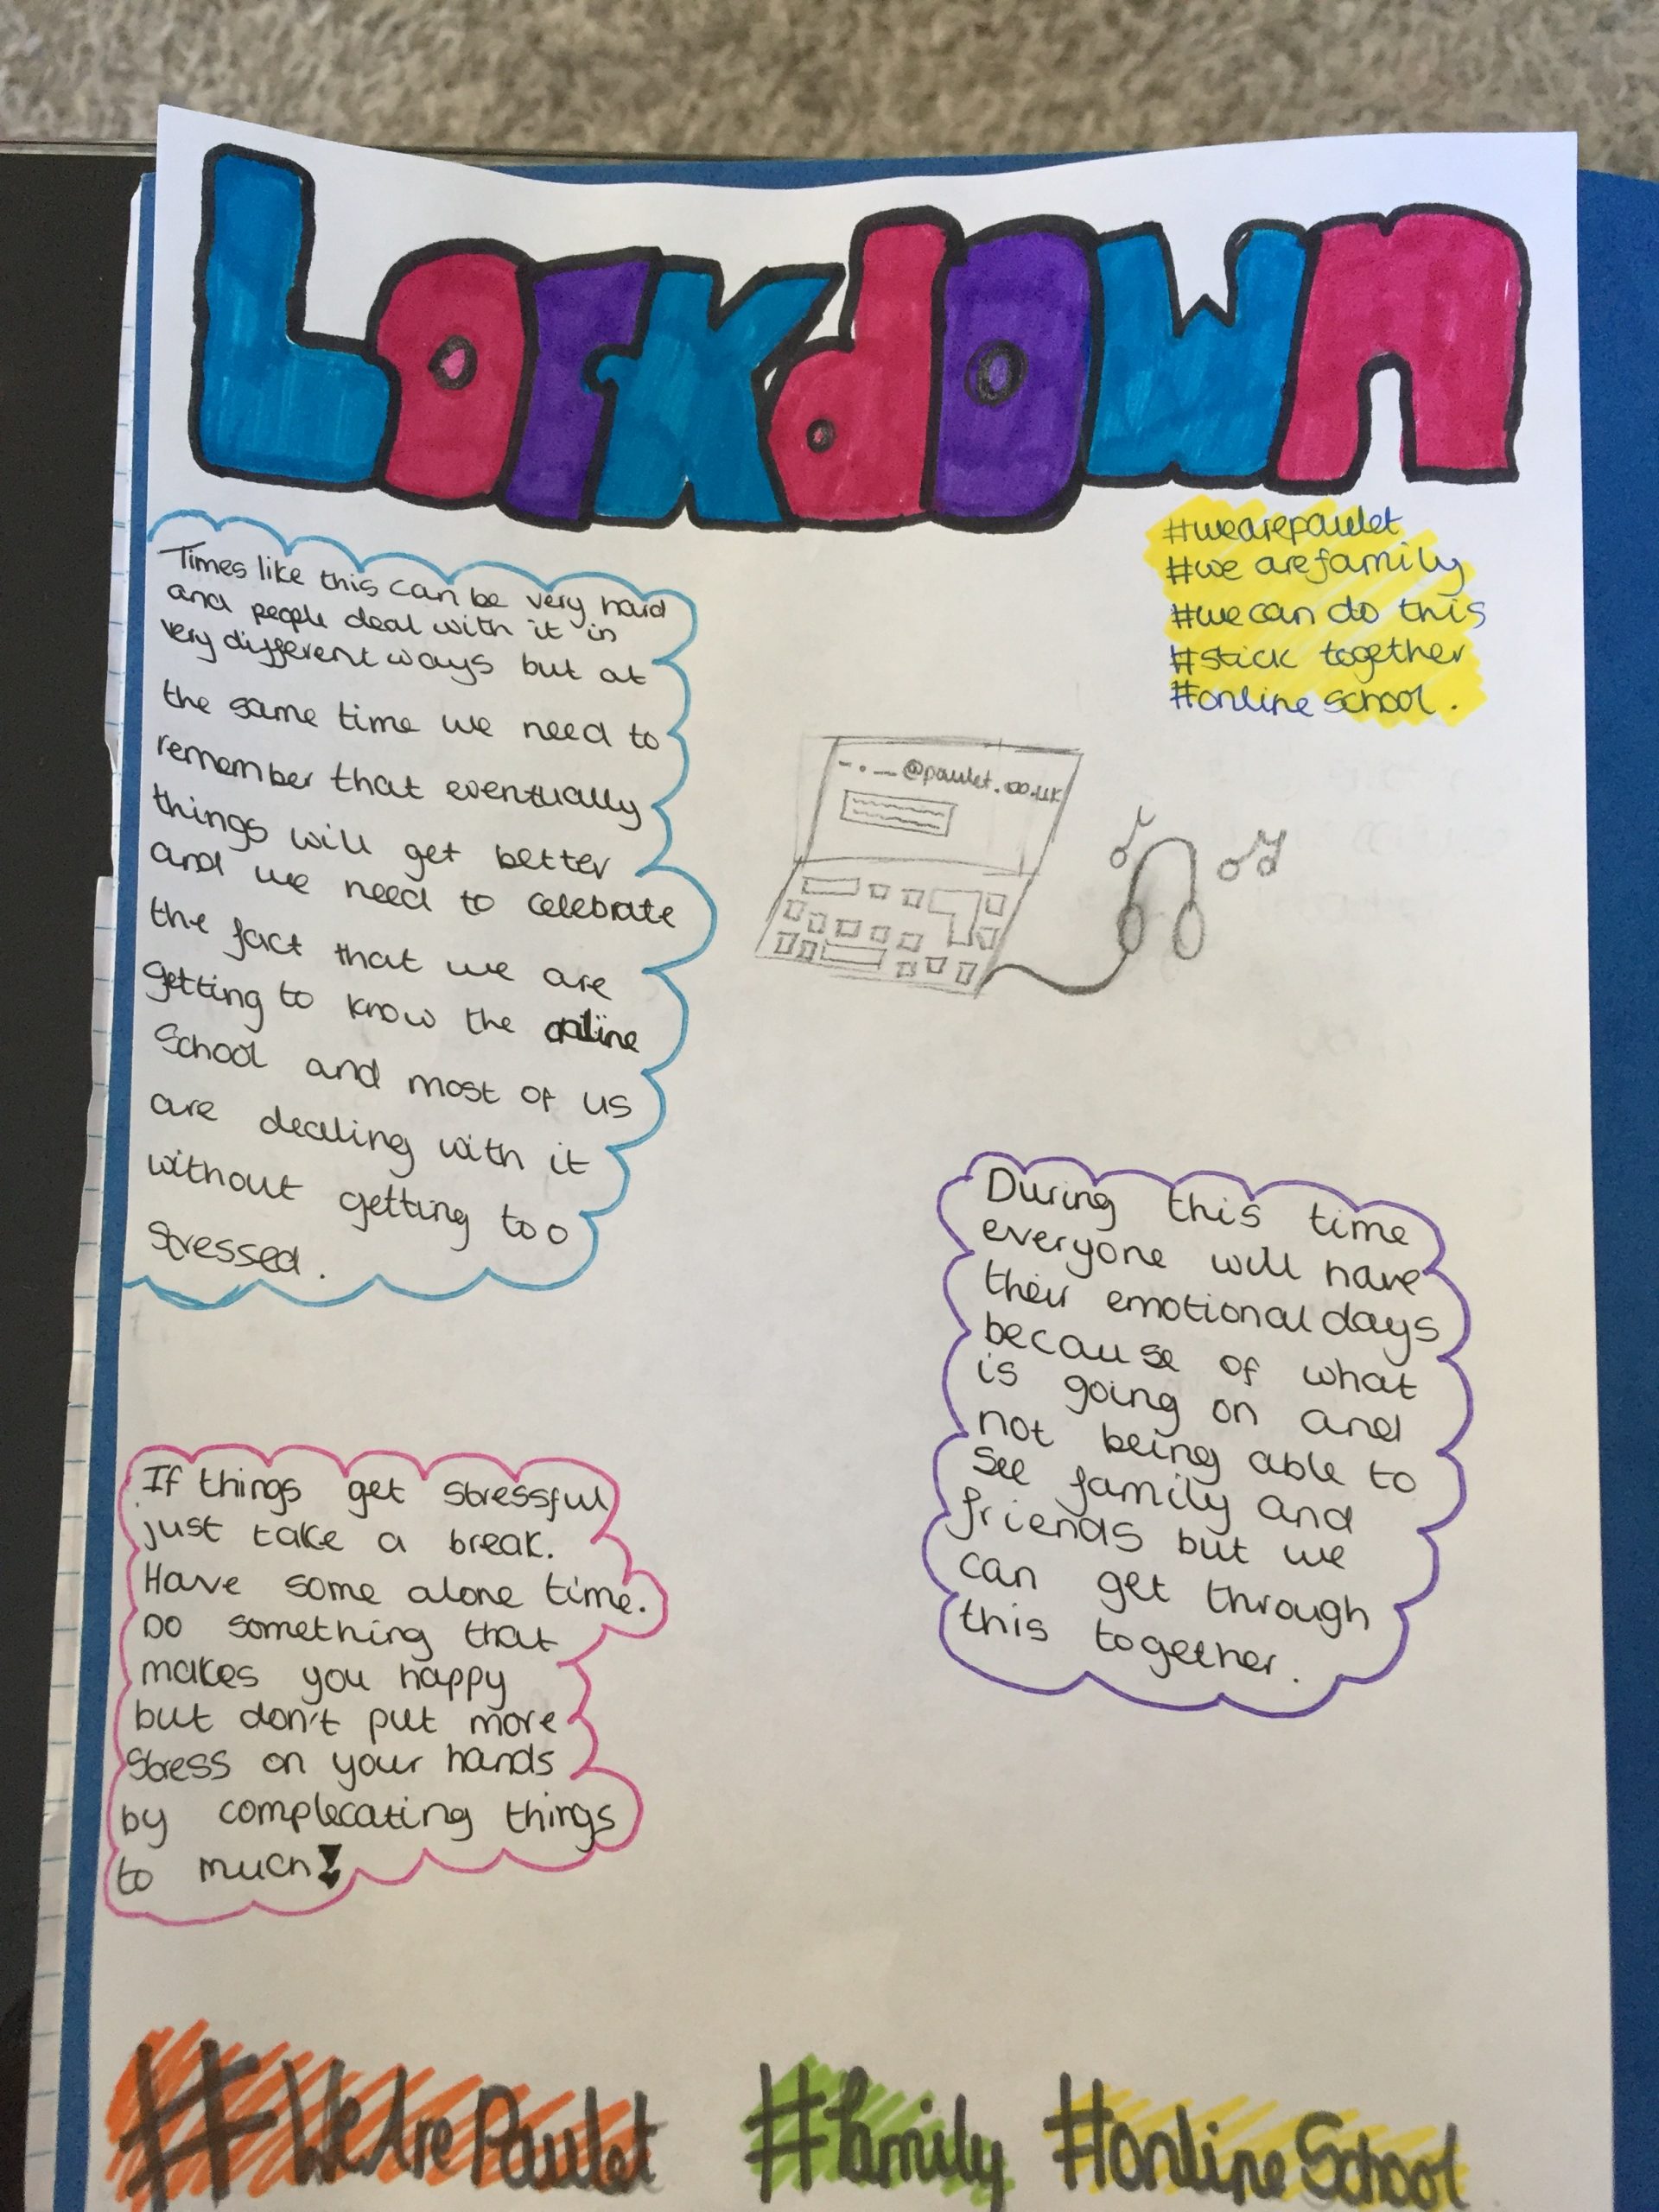 Lockdown
#wearepaulet
#we arefamily
#we can do this
#stick together
#online school.
Times like this can be very hard
and people deal with it in
very different ways but at
the same time we need to
remember that eventually
things will get better
and we need to celebrate
the fact that we are
getting to know the online
School and most of us
are dealing with it
without getting too
stressed.
-._@paulet.co.uk
During this time
everyone will have
their emotional days
because of what
is going on and
not being able to
see family and
friends but we
can get through
this together.
If things get stressful
just take a break.
Have some alone time.
Do something that
makes you happy
but don't put more
stress on your hands
by complecating things
to much!
#WeArePaulet #family #onlineSchool